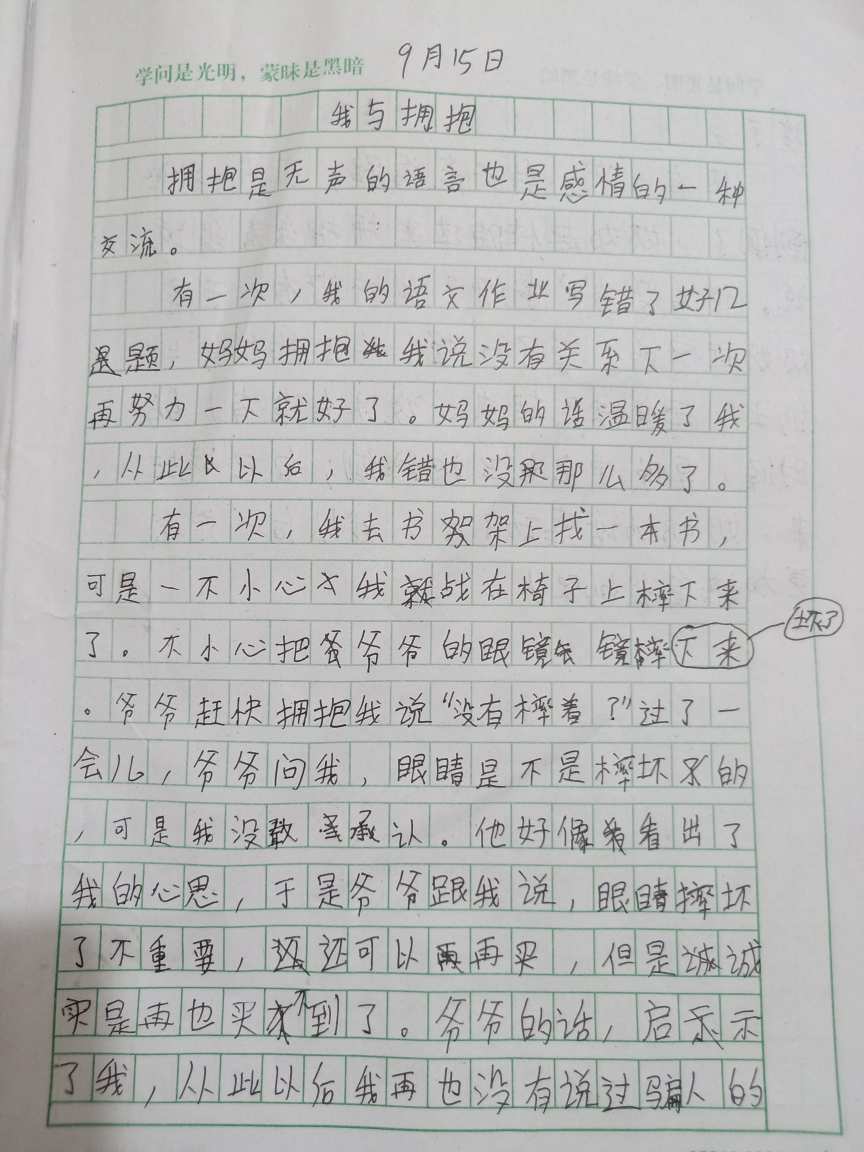 学问是光明，蒙昧是黑暗 9月15日
我与拥抱
拥抱是无声的语言也是感情的一种
交流。
有一次，我的语文作业写错了好几
题，妈妈拥抱我说没有关系下一次
再努力一下就好了。妈妈的话温暖了我
，从此以后，我错也没那么多了。
有一次，我去书架上找一本书，
可是一不小心我战在椅子上摔下来
了。不小心把爷爷的眼镜摔下来 坏了
。爷爷赶快拥抱我说“没有摔着？”过了一
会儿，爷爷问我，眼睛是不是摔坏的
，可是我没敢承认。他好像看出了
我的心思，于是爷爷跟我说，眼睛摔坏
了不重要，还可以再买，但是诚
实是再也买不到了。爷爷的话，启示
了我，从此以后我再也没有说过骗人的